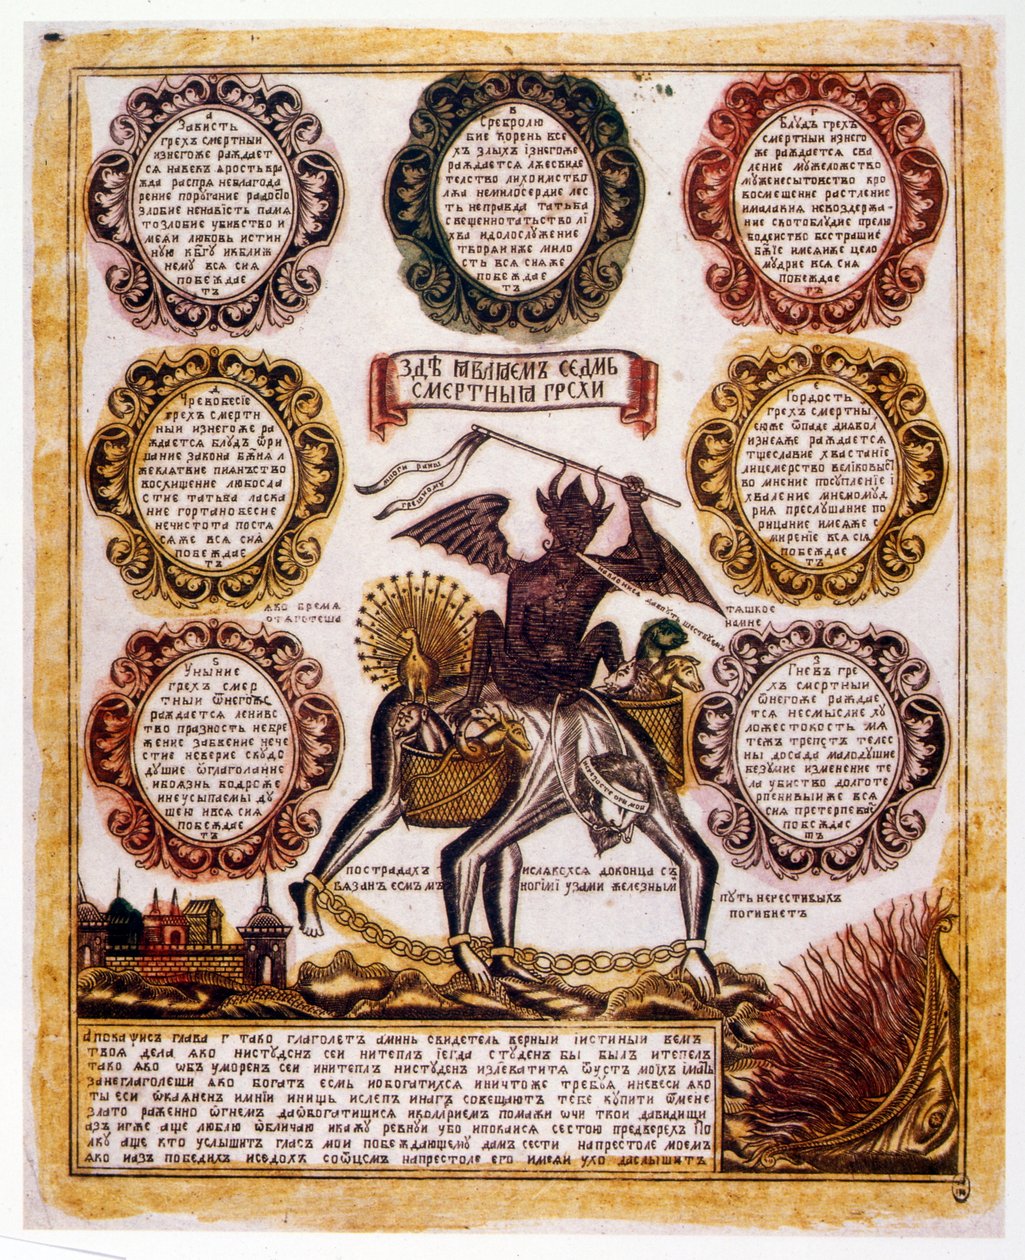 а
Зависть
грехъ смертныи
изнегоже раждает
ся навекъ ярость вра
жда распря неблагода
рение поругание радостiо
злобие ненавiсть памя
тозлобие убивство и
меяи любовь истин
ную кбгу иκближ
нему вся сия
побеждае
тъ
в
Сребролю
бие корень все
хъ злыхъ iзнегоже
раждается лжесвиде
телство лихоимство
лжа немилосердие лес
ть неправда татьба
священнотатьство лi
хва идолослужение
творяи же мило
сть вся сияже
побеждае
тъ
г
Блудъ грехъ
смертныи изнего
же раждается сва
ление мужеложство
муженесытовство кро
восмешение растление
малакия невоздержа-
ние скотоблудие прелю
бодеиство бестрашие
бжiе имеяиже цело
мудрие вся сия
побеждае
тъ
ЗДѢ ѨВЛѦЕМЪ СЕДМЬ
СМЕРТНЫѦ ГРЕХИ
д
Чревобесiе
грехъ смертн
ыи изнегоже ра
ждается блудъ ѿри
цание закона бжия л
жеклятвие пиянъство
восхищение любосда
стие татьва ласка
ние гортанобесие
нечистота постя
сяже вся сия
побеждае
тъ
е
Гордость
грехъ смертны
еюже ѿпаде диявол
изнеяже раждается
тщеславие хвастанiе
лицемерство велiковые
во мнение посупление i
хваление мнемомуд
рия преслушание по
рицание имеяже с
мирение вся сiя
побеждае
тъ
многи раны
грешному
яко бремя
отяготеша
тяжкое
намне
ѕ
Уныние
грехъ смер
тныи ѿнегоже
раждается ленивс
тво празность небре
жение забвение нече
стие неверие скудо
душие ѿглаголание
ибоязнь бодроже
ине усыпаемы ду
шею ився сия
побеждае
тъ
з
Гневъ гре
хъ смертныи
ѿнегоже раждае
тся несмыслие ху
ложестокость мя
тежъ трепетъ телес
ны досада малодушие
безумие изменение те
ла убиство долготе
рпеливыиже вся
сия претерпевая
побеждае
тъ
пострадахъ ислякохся доконца съ
вязанъ есмъ мъ ногiмi узами железными
путь нечестивыхъ
погибнетъ
Апокаѱисъ глава г тако глаголетъ аминь свидетель верныи iистиныи вемъ
твоя дела яко нистуденъ еси нитеплъ iегда студенъ бы былъ итеплъ
тако яко ѡбъуморенъ еси инитеплъ нистуденъ излеватитя ѿустъ моiхъ iмаль
занеглаголеши яко богатъ есмь иобогатихся иничтоже требуя иневеси яко
ты еси ѡкаяненъ имнiи инищъ ислепъ инагъ совещаютъ тебе купити ѿмене
злато раженно ѿгнемъ даѡбогатишися иколлриемъ помажи ѡчи твои давидиши
азъ иже аще люблю ѡбличаю икажу ревнуи убо ипокаися сестою предверехъ По
неку аще кто услышитъ гласъ мои побеждающему дамъ сести напрестоле моемъ
яко иазъ победихъ иседохъ соѿцемъ напрестоле его имеяи ухо даслышитъ